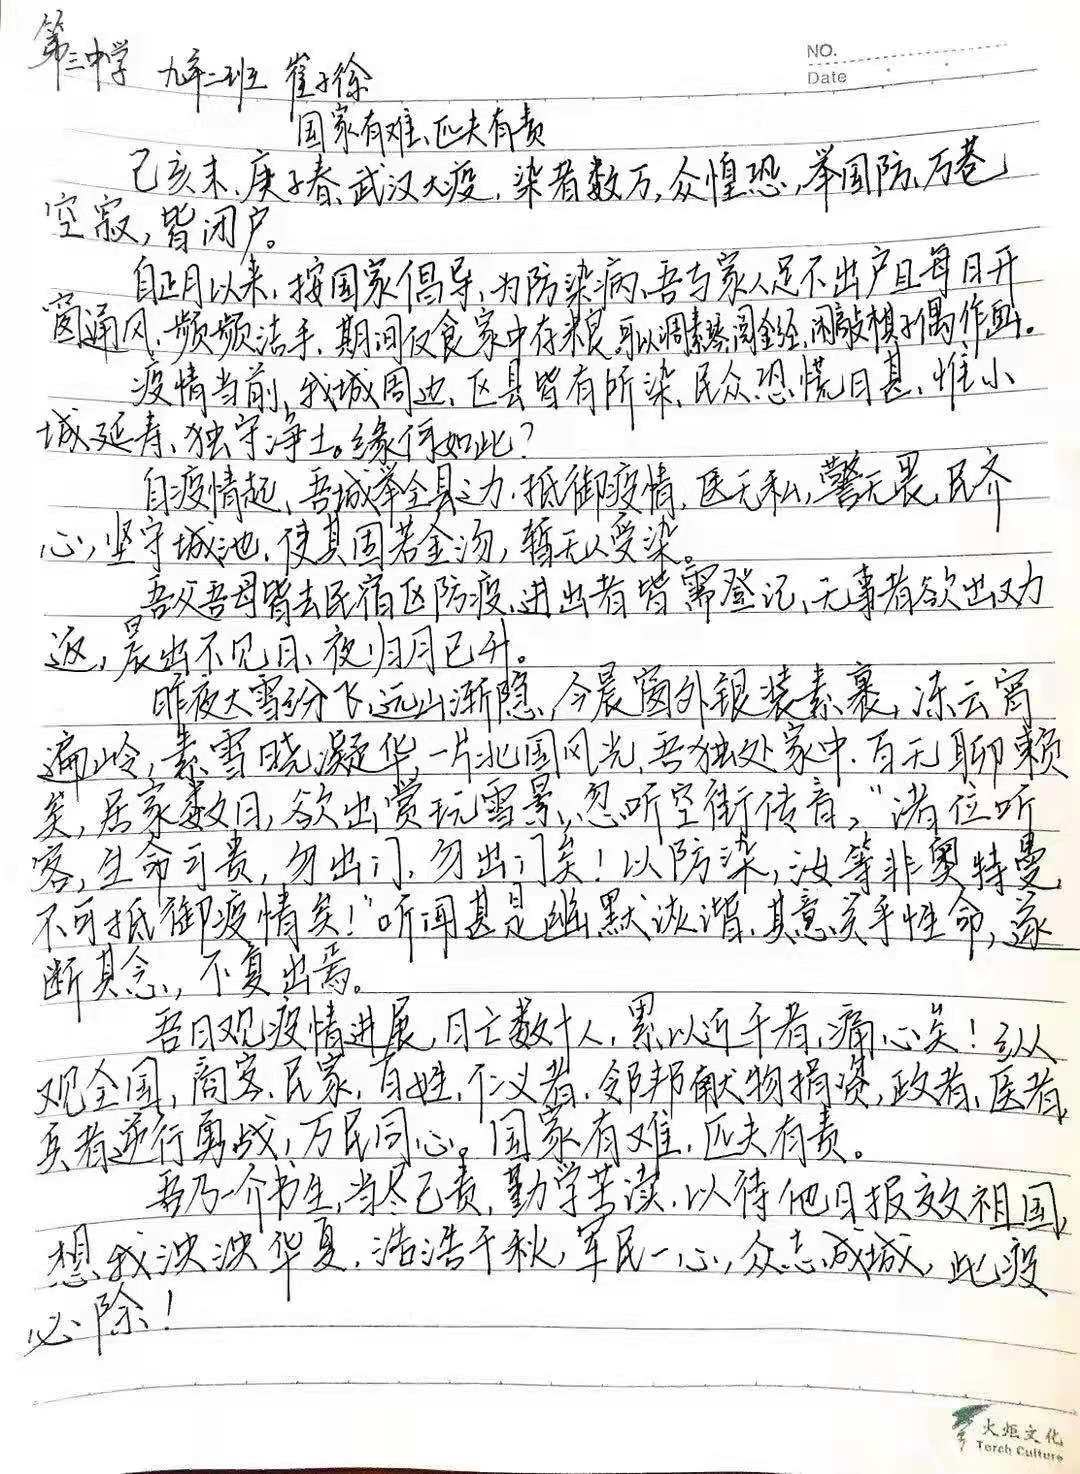 第三中学 九年二班 崔子徐
NO.
Date
国家有难、匹夫有责
己亥末、庚子春、武汉大疫，染者数万，众惶恐，举国防、万巷
空寂，皆闭户。
自正月以来，按国家倡导，为防染病、吾与家人足不出户且每日开
窗通风、频频洁手、期间仅食家中存粮，可以调素琴，阅金经，闲敲棋子偶作画。
疫情当前，我城周边，区县皆有所染，民众恐慌日甚，惟小
城延寿、独守净土。缘何如此？
自疫情起、吾城举全县之力，抵御疫情，医无私，警无畏，民齐
心，坚守城池，使其固若金汤，暂无人受染。
吾父吾母皆去民宿区防疫，进出者皆需登记、无事者欲出又力
返，晨出不见日、夜归月已升。
昨夜大雪纷飞，远山渐隐，今晨窗外银装素裹，冻云宵
遍岭，素雪晓凝华，一片北国风光，吾独处家中，百无聊赖
矣，居家数日，欲出赏玩雪景，忽听空街传音，“诸位听
客，生命可贵，勿出门，勿出门矣！以防染，汝等非奥特曼，
不可抵御疫情矣！”听闻甚是幽默诙谐，其意关乎性命，遂
断其念，不复出焉。
吾日观疫情进展，日亡数十人，累以近千者，痛心矣！纵
观全国，商客、民家，百姓，不义者，邻邦献物捐资，政者，医者，
兵者逆行勇战，万民同心。国家有难，匹夫有责。
吾乃一介书生，当尽己责，勤学苦读，以待他日报效祖国，
想我泱泱华夏，浩浩千秋，军民一心，众志成城，此疫
必除！
火炬文化
Torch Culture